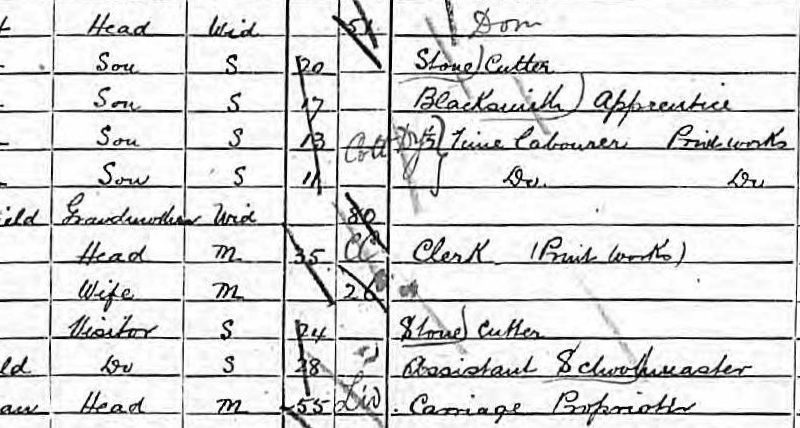 Head Wid 51 Dom
Son S 20 Stone Cutter
Son S 17 Blacksmith Apprentice
Son S 13 Cott ½ Time Labourer Print works
Son S 11 Do. Do
ield Grandmother Wid 80
Head M 35 Cl Clerk (Print Works)
Wife M 26
Visitor S 24 Stone Cutter
ld Do S 28 Assistant Schoolmaster
Head M 55 Liv Carriage Proprietor